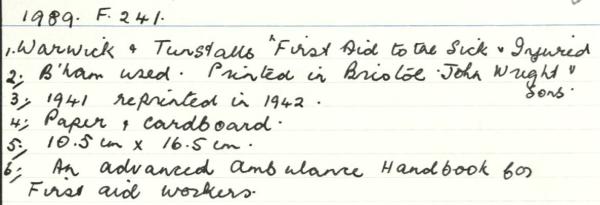 1989. F. 241.
1. Warwick & Tunstalls "First Aid to the Sick & Injured
2; B'ham used. Printed in Bristol. John Wright &
Sons.
3; 1941 reprinted in 1942.
4; Paper & cardboard.
5; 10.5 cm x 16.5 cm.
6; An advanced ambulance Handbook for
First aid workers.